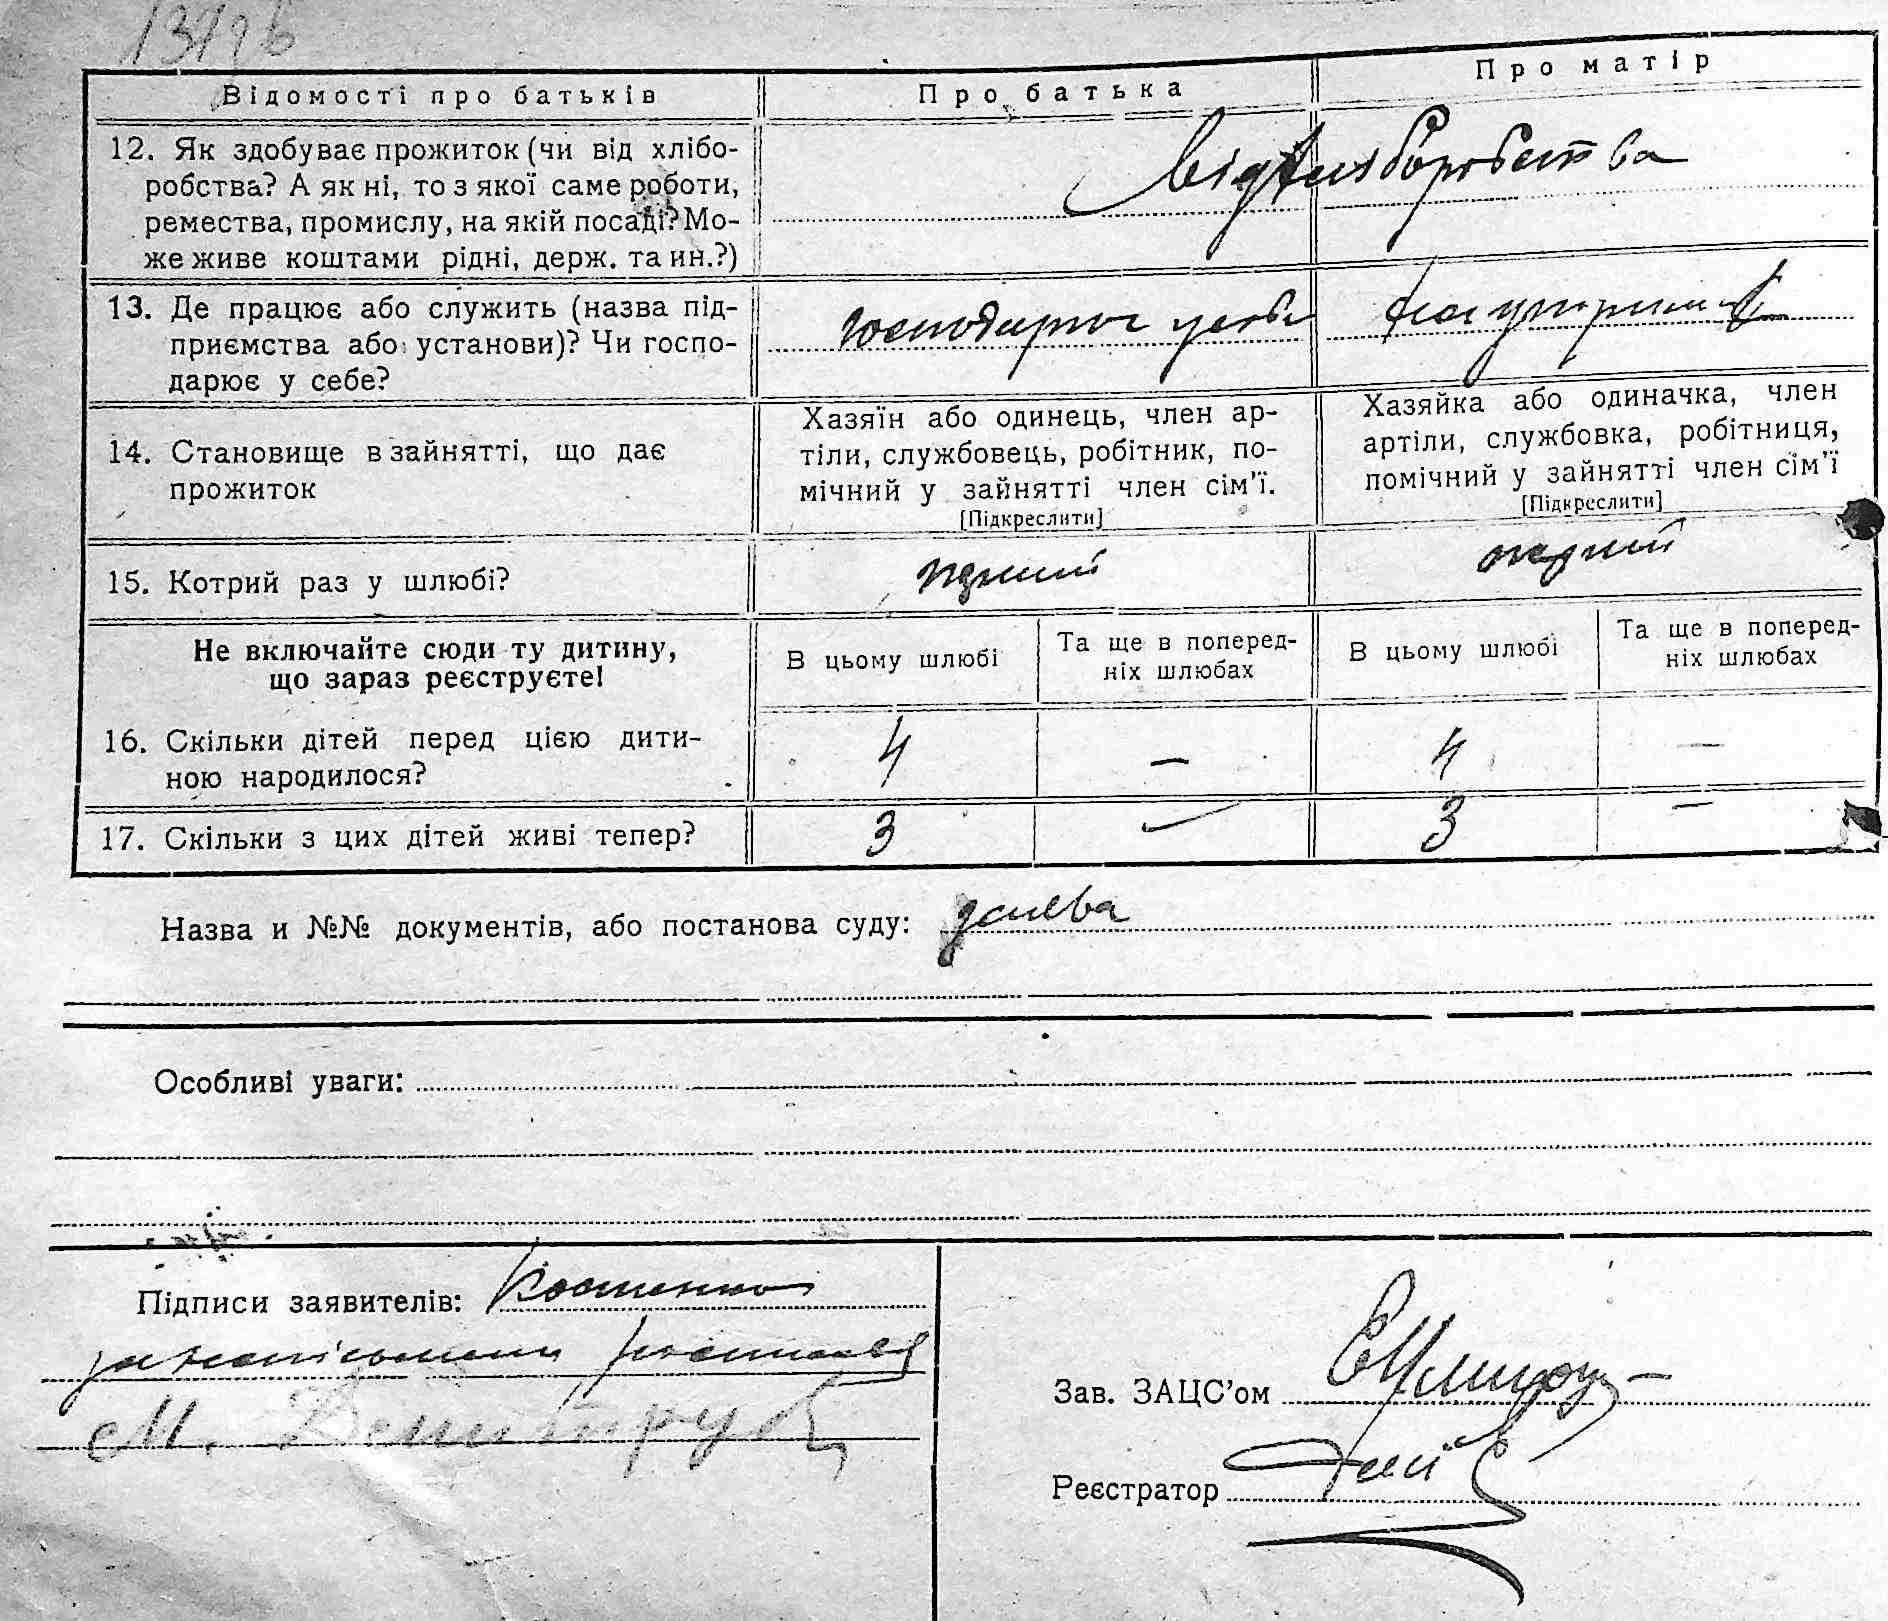 Відомості про батьків Про батька Про матір
12. Як здобуває прожиток (чи від хлібо-
робства? А як ні, то з якої саме роботи,
ремества, промислу, на якій посаді? Мо-
же живе коштами рідні, держ. та ин.?)
від хліборобства
13. Де працює або служить (назва під-
приємства або установи)? Чи госпо-
дарює у себе?
господарює у себе
на утриман
14. Становище в зайнятті, що дає
прожиток
Хазяїн або одинець, член ар-
тіли, службовець, робітник, по-
мічний у зайнятті член сім'ї.
[Підкреслити]
Хазяйка або одиначка, член
артіли, службовка, робітниця,
помічний у зайнятті член сім'ї
[Підкреслити]
15. Котрий раз у шлюбі? перший перший
Не включайте сюди ту дитину,
що зараз реєструєте!
В цьому шлюбі
Та ще в поперед-
ніх шлюбах
В цьому шлюбі
Та ще в поперед-
ніх шлюбах
16. Скільки дітей перед цією дити-
ною народилося?
4 — 4 —
17. Скільки з цих дітей живі тепер? 3 — 3 —
Назва и №№ документів, або постанова суду: заява
Особливі уваги:
Підписи заявителів: Костенко
М.
Зав. ЗАЦС'ом
Реєстратор